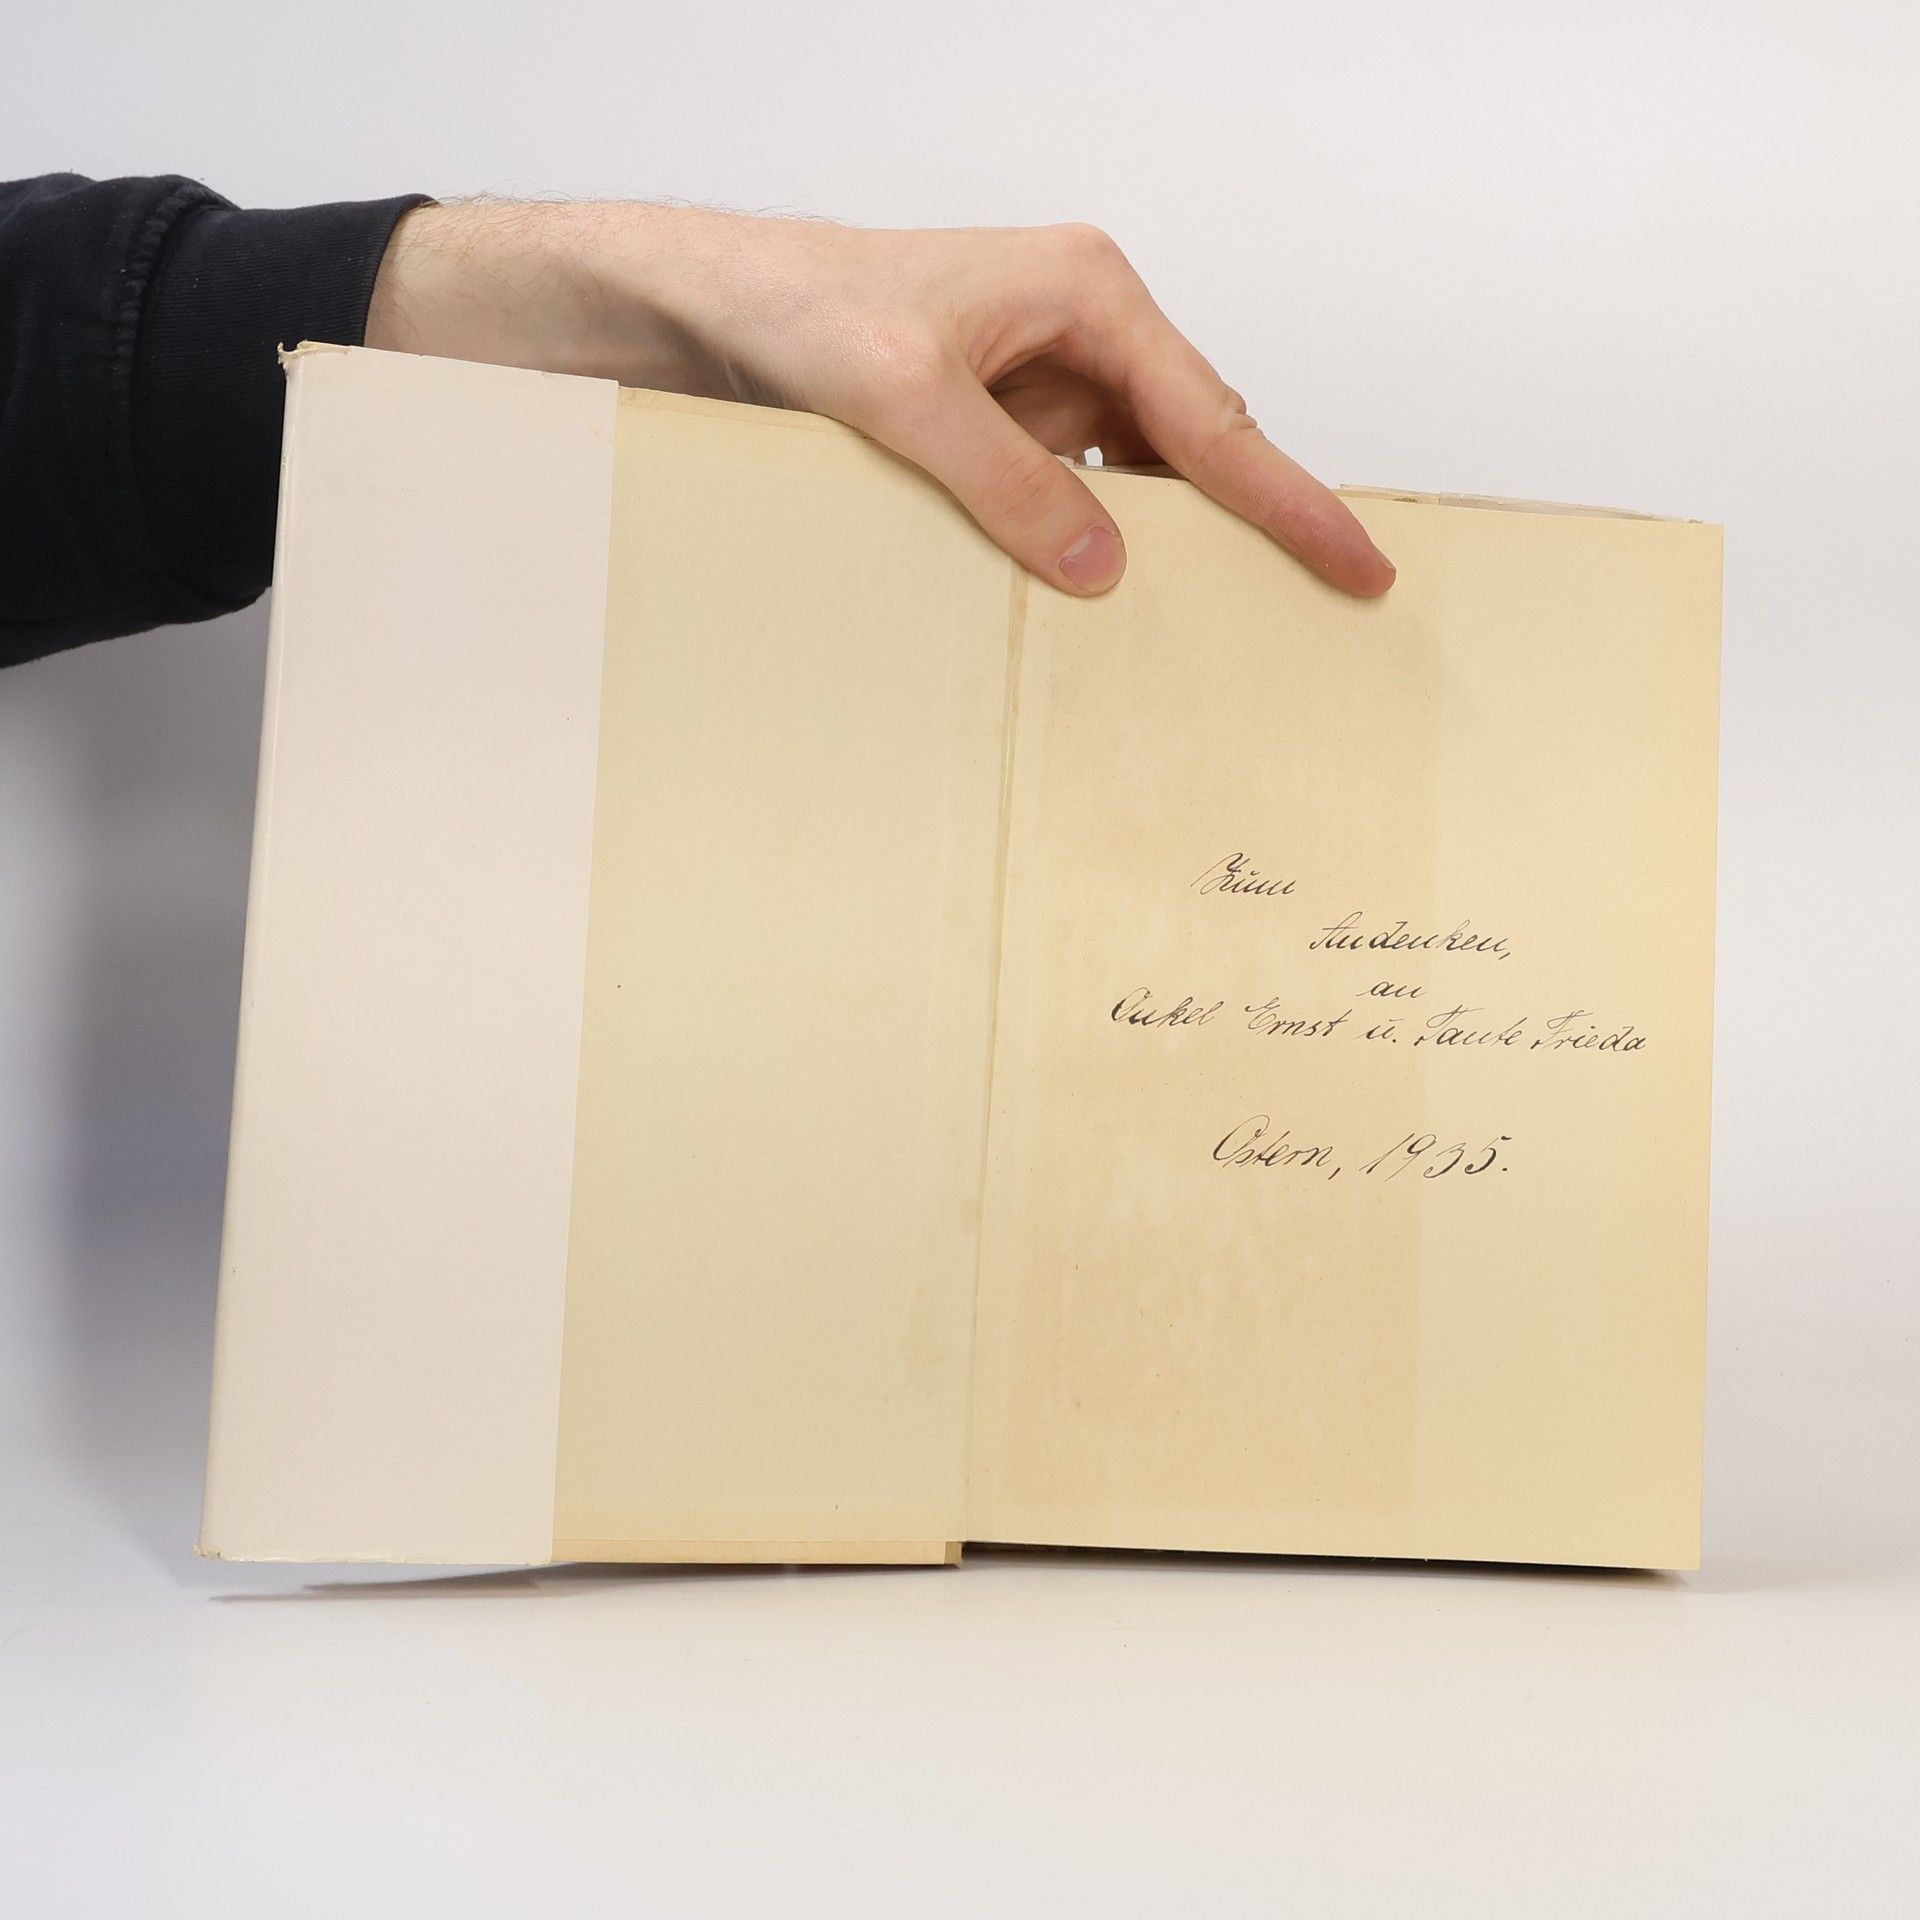 Zum
Andenken,
an
Onkel Ernst u. Tante Frieda
Ostern, 1935.